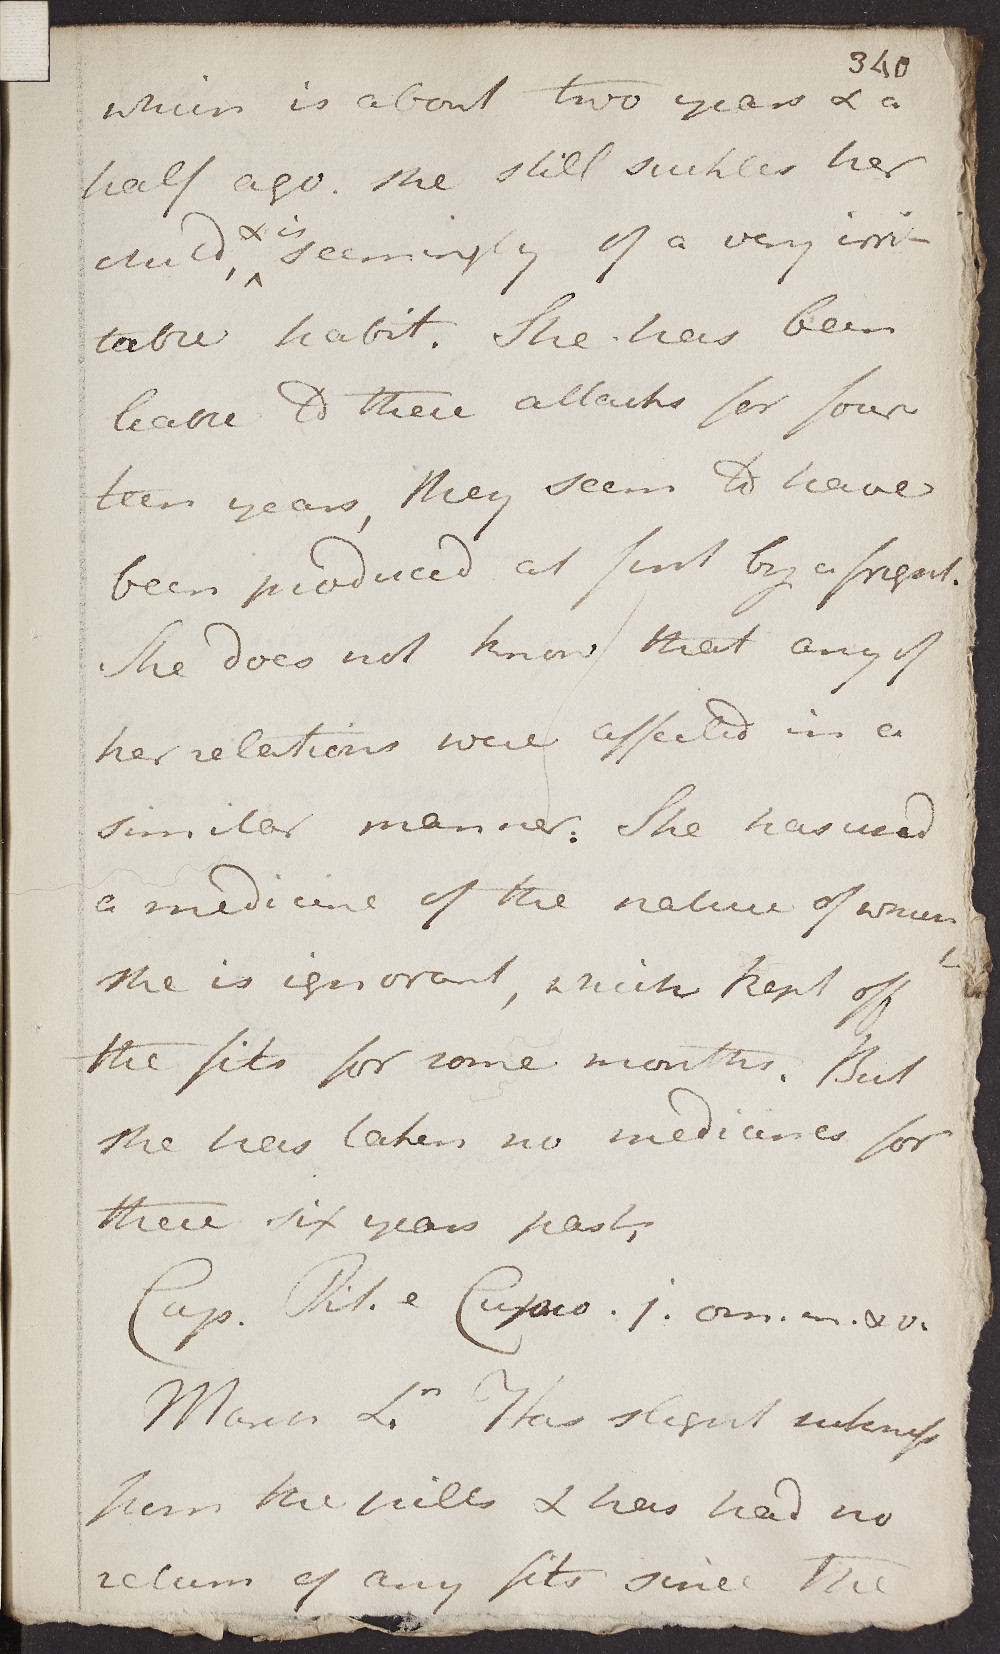 340
which is about two years & a
half ago. she still suckles her
child, & is seemingly of a very irri-
table habit. She has been
liable to these attacks for four
teen years, they seem to have
been produced at first by a fright.
She does not know that any of
her relations were affected in a
similar manner: She has used
a medicine of the nature of which
she is ignorant, which kept off
the fits for some months. But
she has taken no medicines for
these six years past,
Cap. Pil. e Cupro. j. om. m. & v.
March Has slight sickness
from the pills & has had no
return of any fits since the